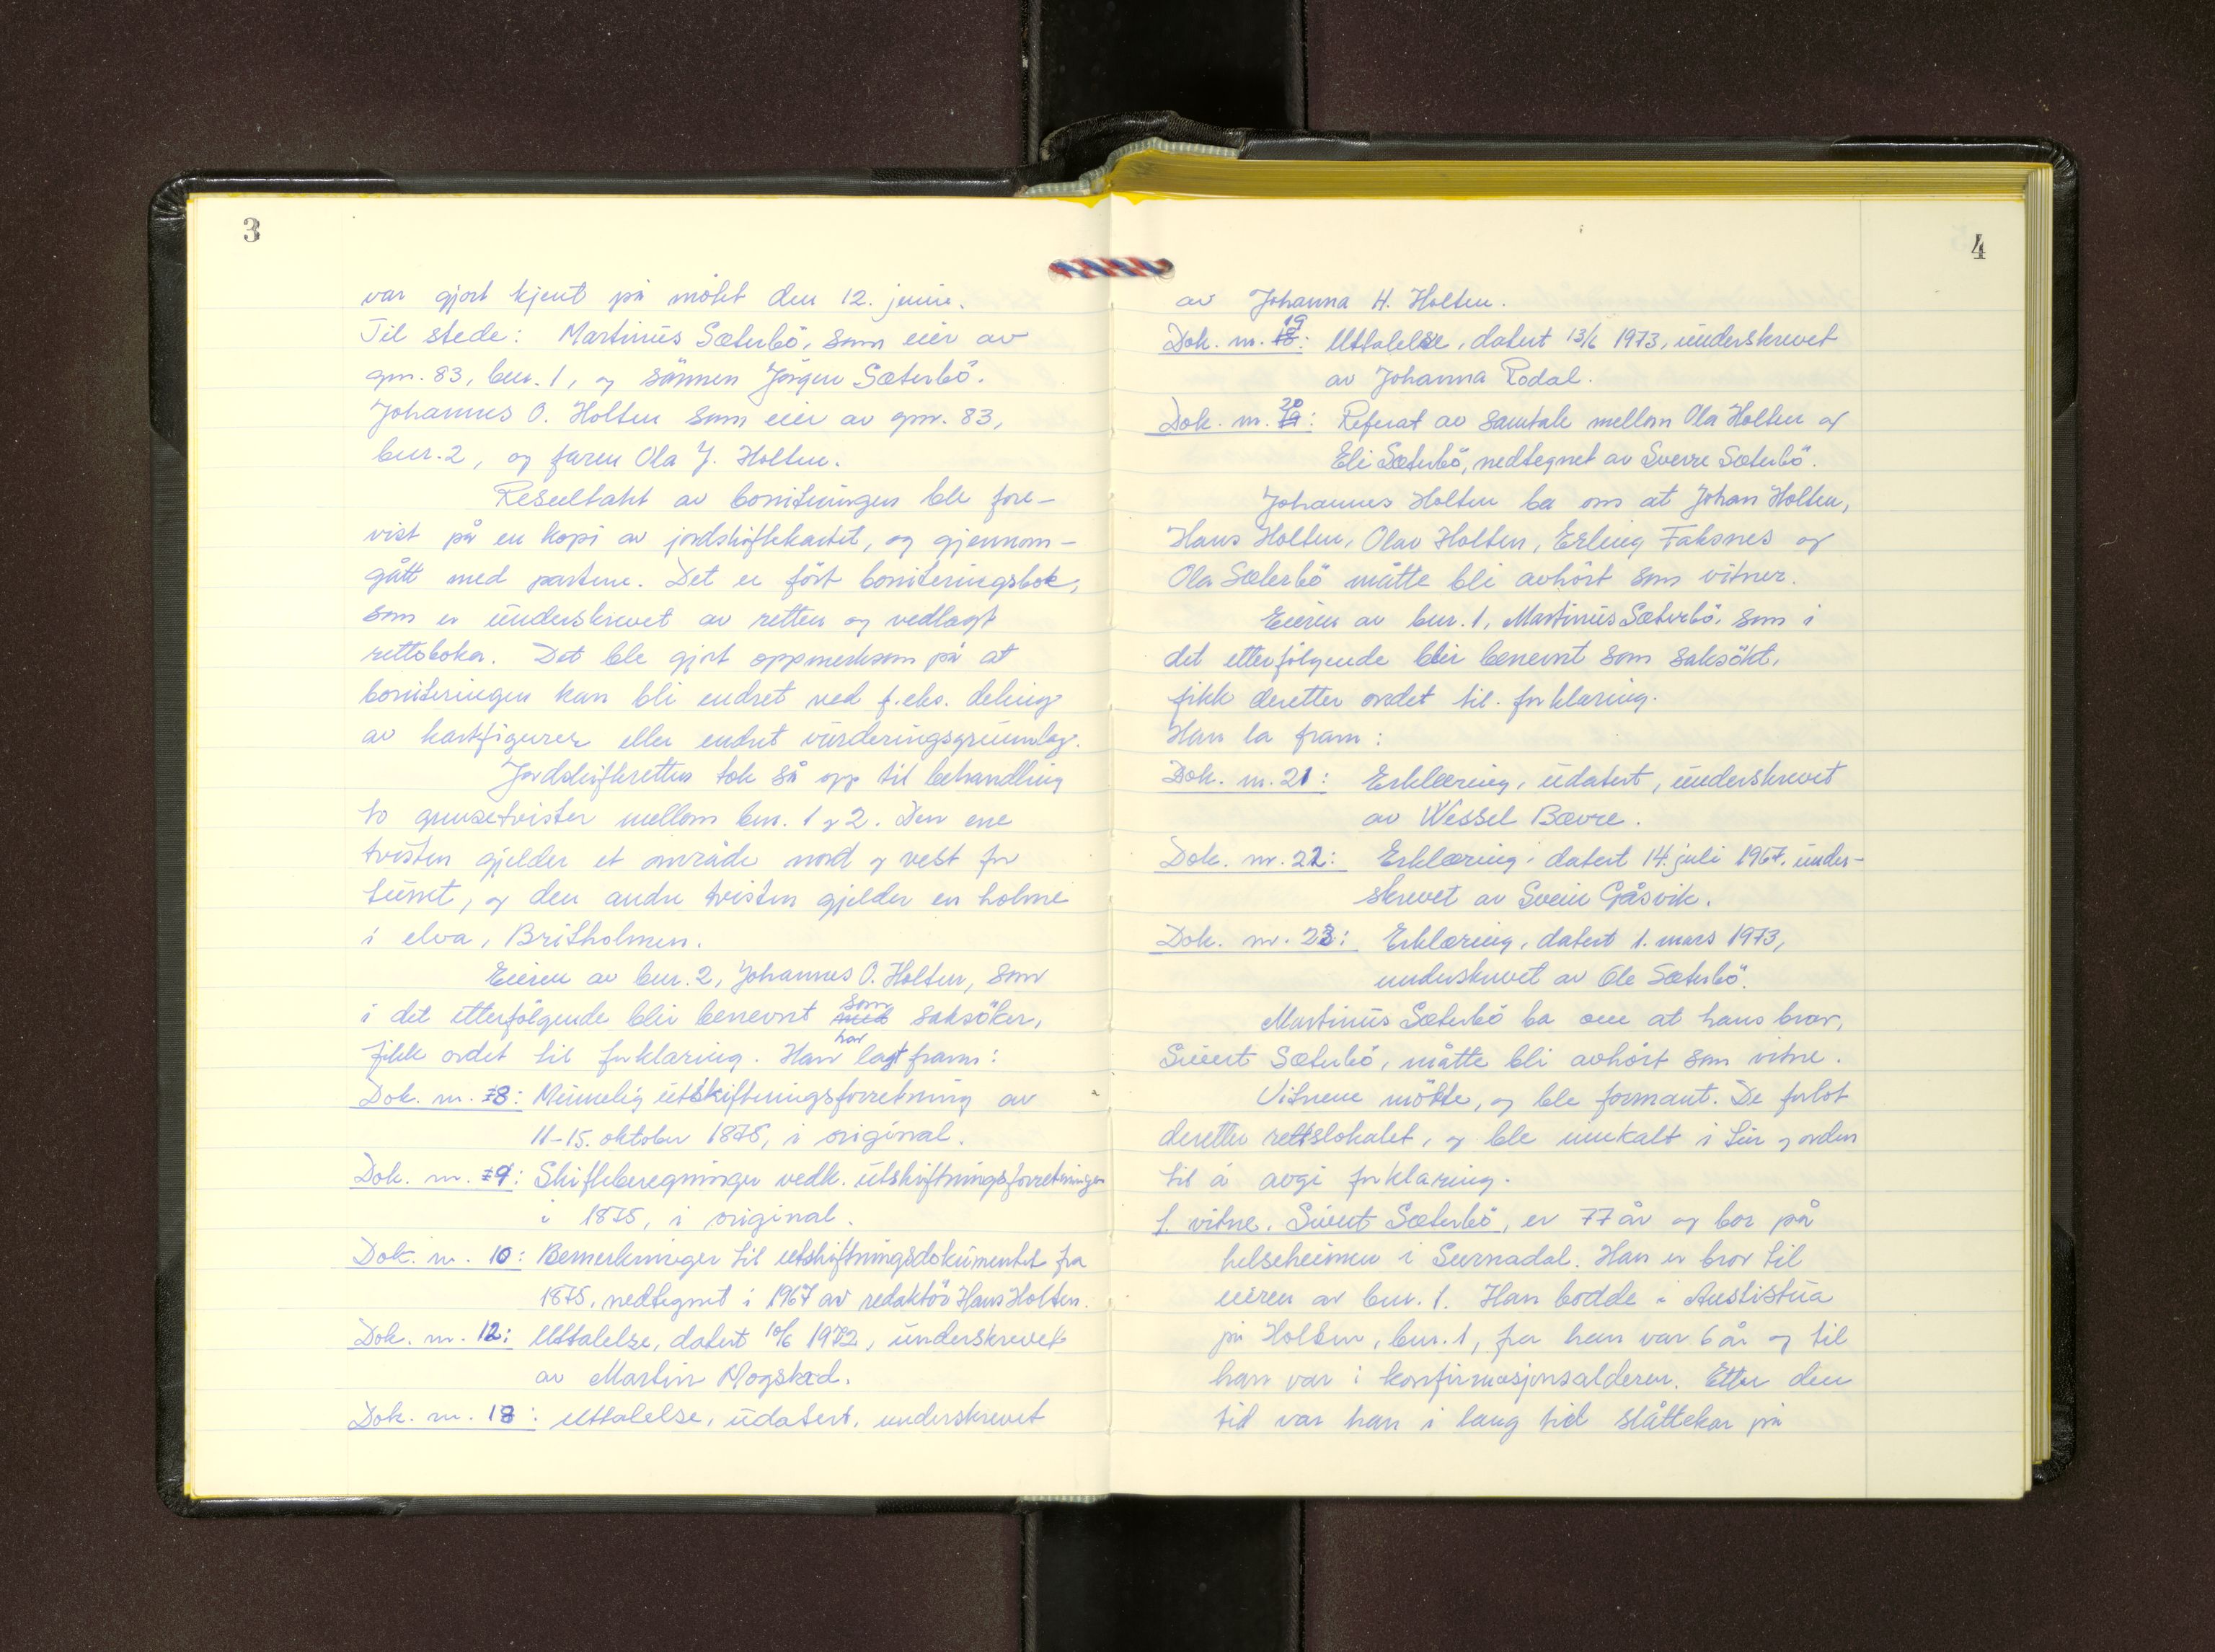 3
var gjort kjent på møtet den 12. juni.
Til stede: Martinus Sæterbö, som eier av
gnr. 83, bnr. 1, og sönnen Jörgen Sæterbö.
Johannes O. Holten som eier av gnr. 83,
bnr. 2, og faren Ola J. Holten.
Resultatet av boniteringen ble fore-
vist på en kopi av jordskiftekartet, og gjennom-
gått med partene. Det er fört boniteringsbok,
som er underskrevet av retten og vedlagt
rettsboka. Det ble gjort oppmerksom på at
boniteringen kan bli endret ved f.eks. deling
av kartfigurer eller endret vurderingsgrunnlag.
Jordskifteretten tok så opp til behandling
to grensetvister mellom bnr. 1 og 2. Den ene
tvisten gjelder et område nord og vest for
tunet, og den andre tvisten gjelder en holme
i elva, Britholmen.
Eieren av bnr. 2, Johannes O. Holten, som
i det etterfölgende blir benevnt som saksöker,
fikk ordet til forklaring. Han har lagt fram:
Dok. nr. 8: Minnelig utskiftningsforretning av
11-15. oktober 1875, i original.
Dok. nr. 9: Skifteberegninger vedk. utskiftningsforretningen
i 1875, i original.
Dok. nr. 10: Bemerkninger til utskiftningsdokumentet fra
1875, nedtegnet i 1967 av redaktör Hans Holten.
Dok. nr. 12: Uttalelse, datert 10/6 1972, underskrevet
av Martin Mogstad.
Dok. nr. 18: Uttalelse, udatert, underskrevet
4
av Johanna H. Holten.
Dok. nr. 19: Uttalelse, datert 13/6 1973, underskrevet
av Johanna Rodal.
Dok. nr. 20: Referat av samtale mellom Ola Holten og
Eli Sæterbö, nedtegnet av Sverre Sæterbö.
Johannes Holten ba om at Johan Holten,
Hans Holten, Olav Holten, Erling Faksnes og
Ola Sæterbö måtte bli avhört som vitner.
Eieren av bnr. 1, Martinus Sæterbö, som i
det etterfölgende blir benevnt som saksökt,
fikk deretter ordet til forklaring.
Han la fram:
Dok. nr. 21: Erklæring, udatert, underskrevet
av Wessel Bævre.
Dok. nr. 22: Erklæring, datert 14. juli 1967, under-
skrevet av Svein Gåsvik.
Dok. nr. 23: Erklæring, datert 1. mars 1973,
underskrevet av Ole Sæterbö.
Martinus Sæterbö ba om at hans bror,
Sivert Sæterbö, måtte bli avhört som vitne.
Vitnene mötte, og ble formant. De forlot
deretter rettslokalet, og ble innkalt i tur og orden
til å avgi forklaring.
1. vitne, Sivert Sæterbö, er 77 år og bor på
helseheimen i Surnadal. Han er bror til
eieren av bnr. 1. Han bodde i Austistua
på Holten, bnr. 1, fra han var 6 år og til
han var i konfirmasjonsalderen. Etter den
tid var han i lang tid slåttekar på